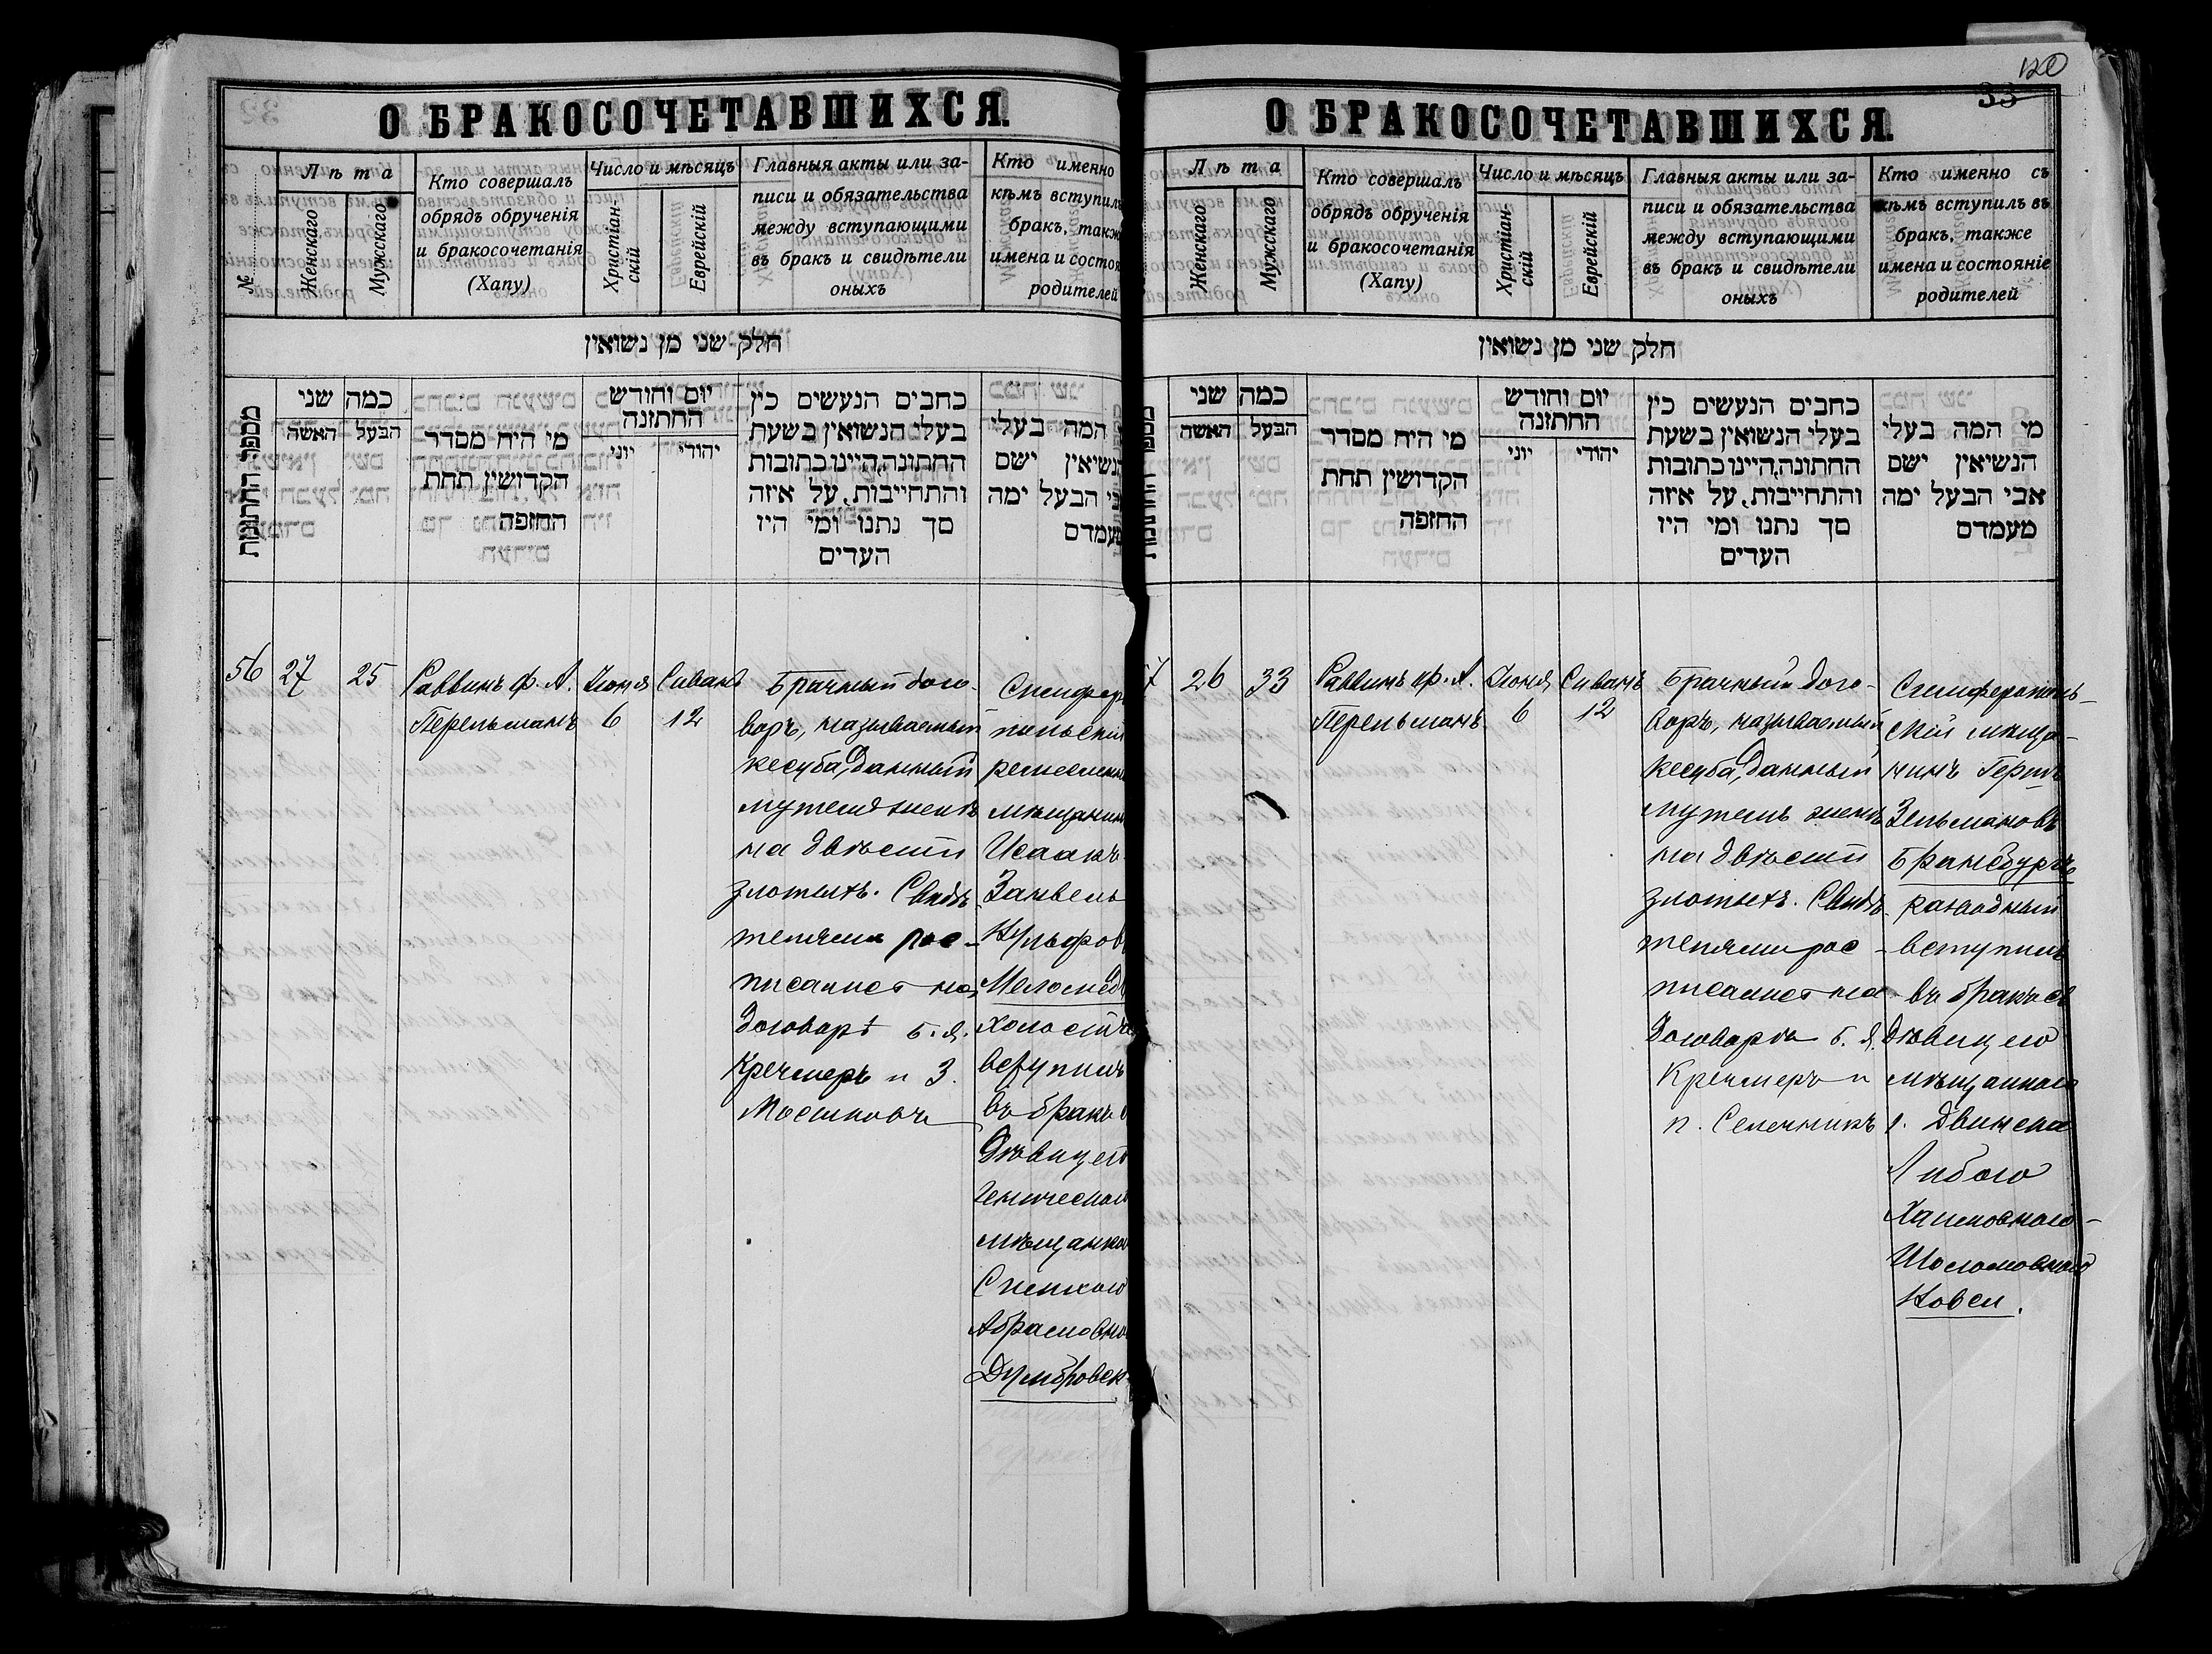 120
33
О БРАКОСОЧЕТАВШИХСЯ.
№
Лѣта
Женскаго
Мужскаго
Кто совершалъ
обрядъ обрученія
и бракосочетанія
(Хапу)
Число и мѣсяцъ
Христіан-
скій
Еврейскій
Главныя акты или за-
писи и обязательства
между вступающими
въ бракъ и свидѣтели
оныхъ
Кто именно
кѣмъ вступилъ
бракъ, также
имена и состоя
родителей
חלק שני מן נשואין
מספר החתונות
כמה שני
הבעל
האשה
מי היח מסדר
הקדושין תחת
החופה
יום וחודש
החתונה
יהודי
יוני
כחבים הנעשים כין
בעלי הנשואין בשעת
החתונה, היינו כתובות
והתחייבות, על איזה
סך נתנו ומי היו
העדים
המה בעלי
הנשיאין ישם
אבי הבעל ימה
מעמדם
56
27
25
Раввинъ Ф. А.
Перельманъ
Іюня
6
Сиванъ
12
Брачный дого-
воръ, называемый
кесуба, данный
мужемъ женѣ
на двѣсти
злотыхъ. Свидѣ-
телями рос-
писались на
договорѣ б. Я.
Кречмеръ и З.
Мосинковъ
Симферо
польскій
ремеслен
мѣщанинъ
Исаакъ
Занвель
Вульфов
Меломед
холостъ
вступилъ
въ бракъ с
дѣвицею
Геническою
мѣщанкою
Симхою
Абрамовно
Думбровск
О БРАКОСОЧЕТАВШИХСЯ.
Лѣта
Женскаго
Мужскаго
Кто совершалъ
обрядъ обрученія
и бракосочетанія
(Хапу)
Число и мѣсяцъ
Христіан-
скій
Еврейскій
Главныя акты или за-
писи и обязательства
между вступающими
въ бракъ и свидѣтели
оныхъ
Кто именно съ
кѣмъ вступилъ въ
бракъ, также
имена и состояніе
родителей
חלק שני מן נשואין
כמה שני
הבעל
האשה
מי היח מסדר
הקדושין תחת
החופה
יום וחודש
החתונה
יהודי
יוני
כחבים הנעשים כין
בעלי הנשואין בשעת
החתונה, היינו כתובות
והתחייבות, על איזה
סך נתנו ומי היו
העדים
מי המה בעלי
הנשיאין ישם
אבי הבעל ימה
מעמדם
7
26
33
Раввинъ Ф. А.
Перельманъ
Іюня
6
Сиванъ
12
Брачный дого-
воръ, называемый
кесуба, данный
мужемъ женѣ
на двѣсти
злотыхъ. Свидѣ-
телями рос-
писались на
договорѣ б. Я.
Кречмеръ и
п. Селечникъ
Симферополь-
скій мѣща-
нинъ Гершъ
Зельмановъ
Брамсбургъ
разводный
вступилъ
въ бракъ съ
дѣвицею
мѣщанкою
г. Двинска
Либою
Хаимовною-
Шоломовною
Новси.